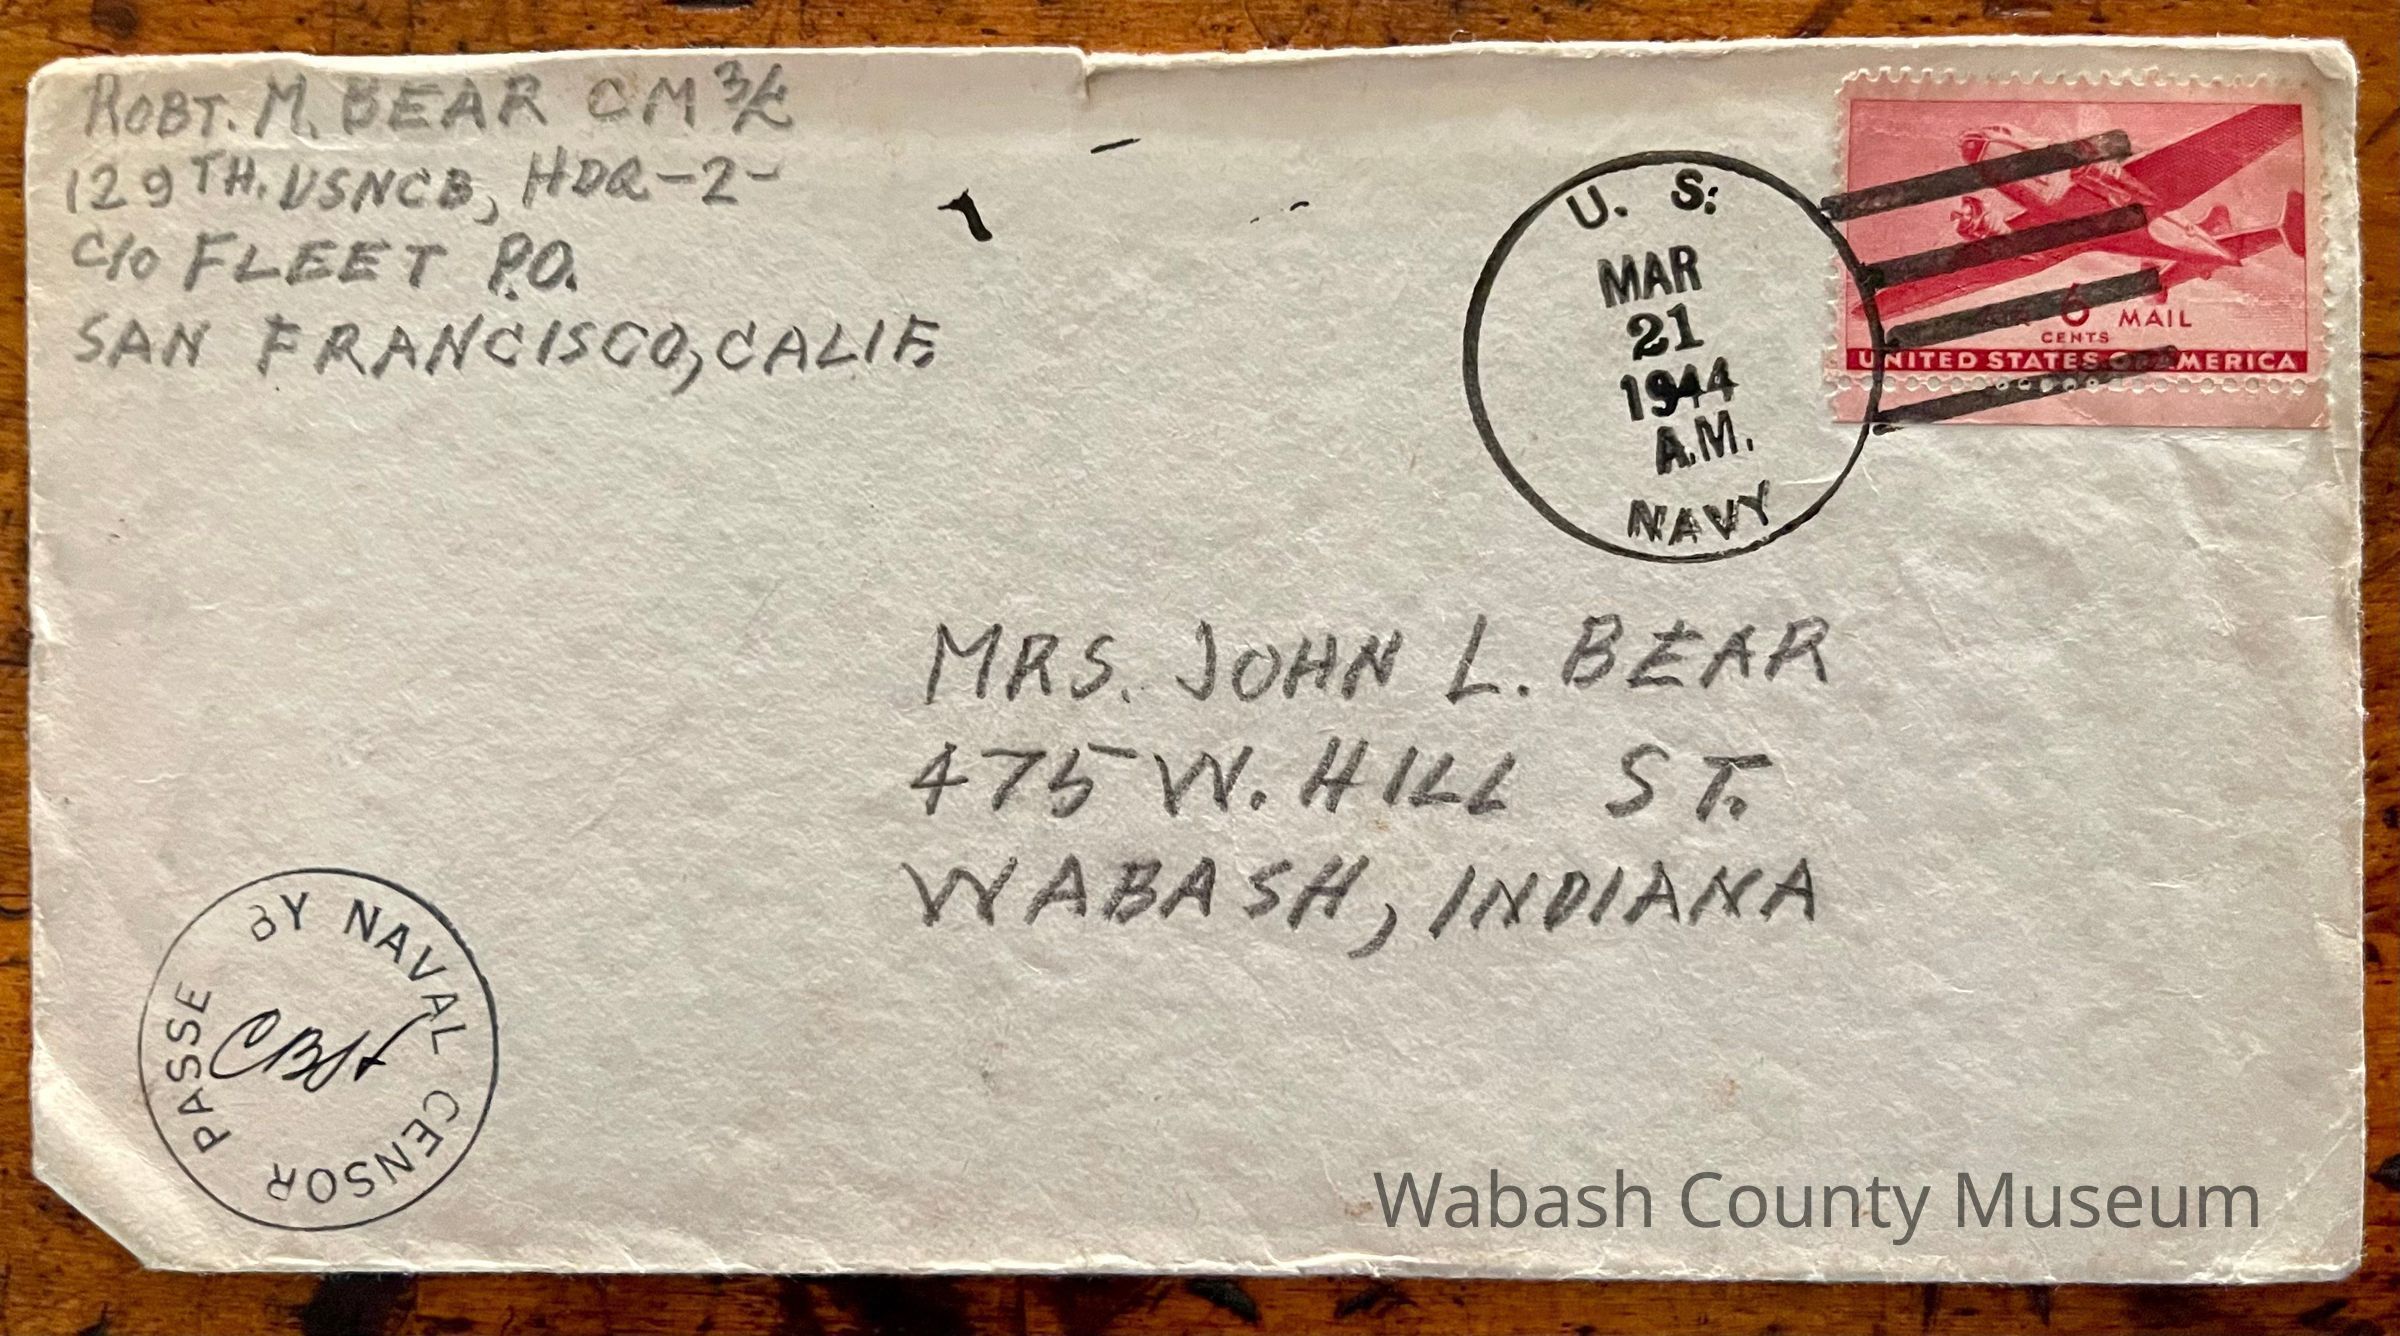 ROBT. M. BEAR CM 3/c
129TH. USNCB, HDQ-2-
C/O FLEET P.O.
SAN FRANCISCO, CALIF.
U. S.
MAR
21
1944
A.M.
NAVY
6
MAIL
CENTS
UNITED STATES OF AMERICA
MRS. JOHN L. BEAR
475 W. HILL ST.
WABASH, INDIANA
PASSE BY NAVAL CENSOR
Wabash County Museum